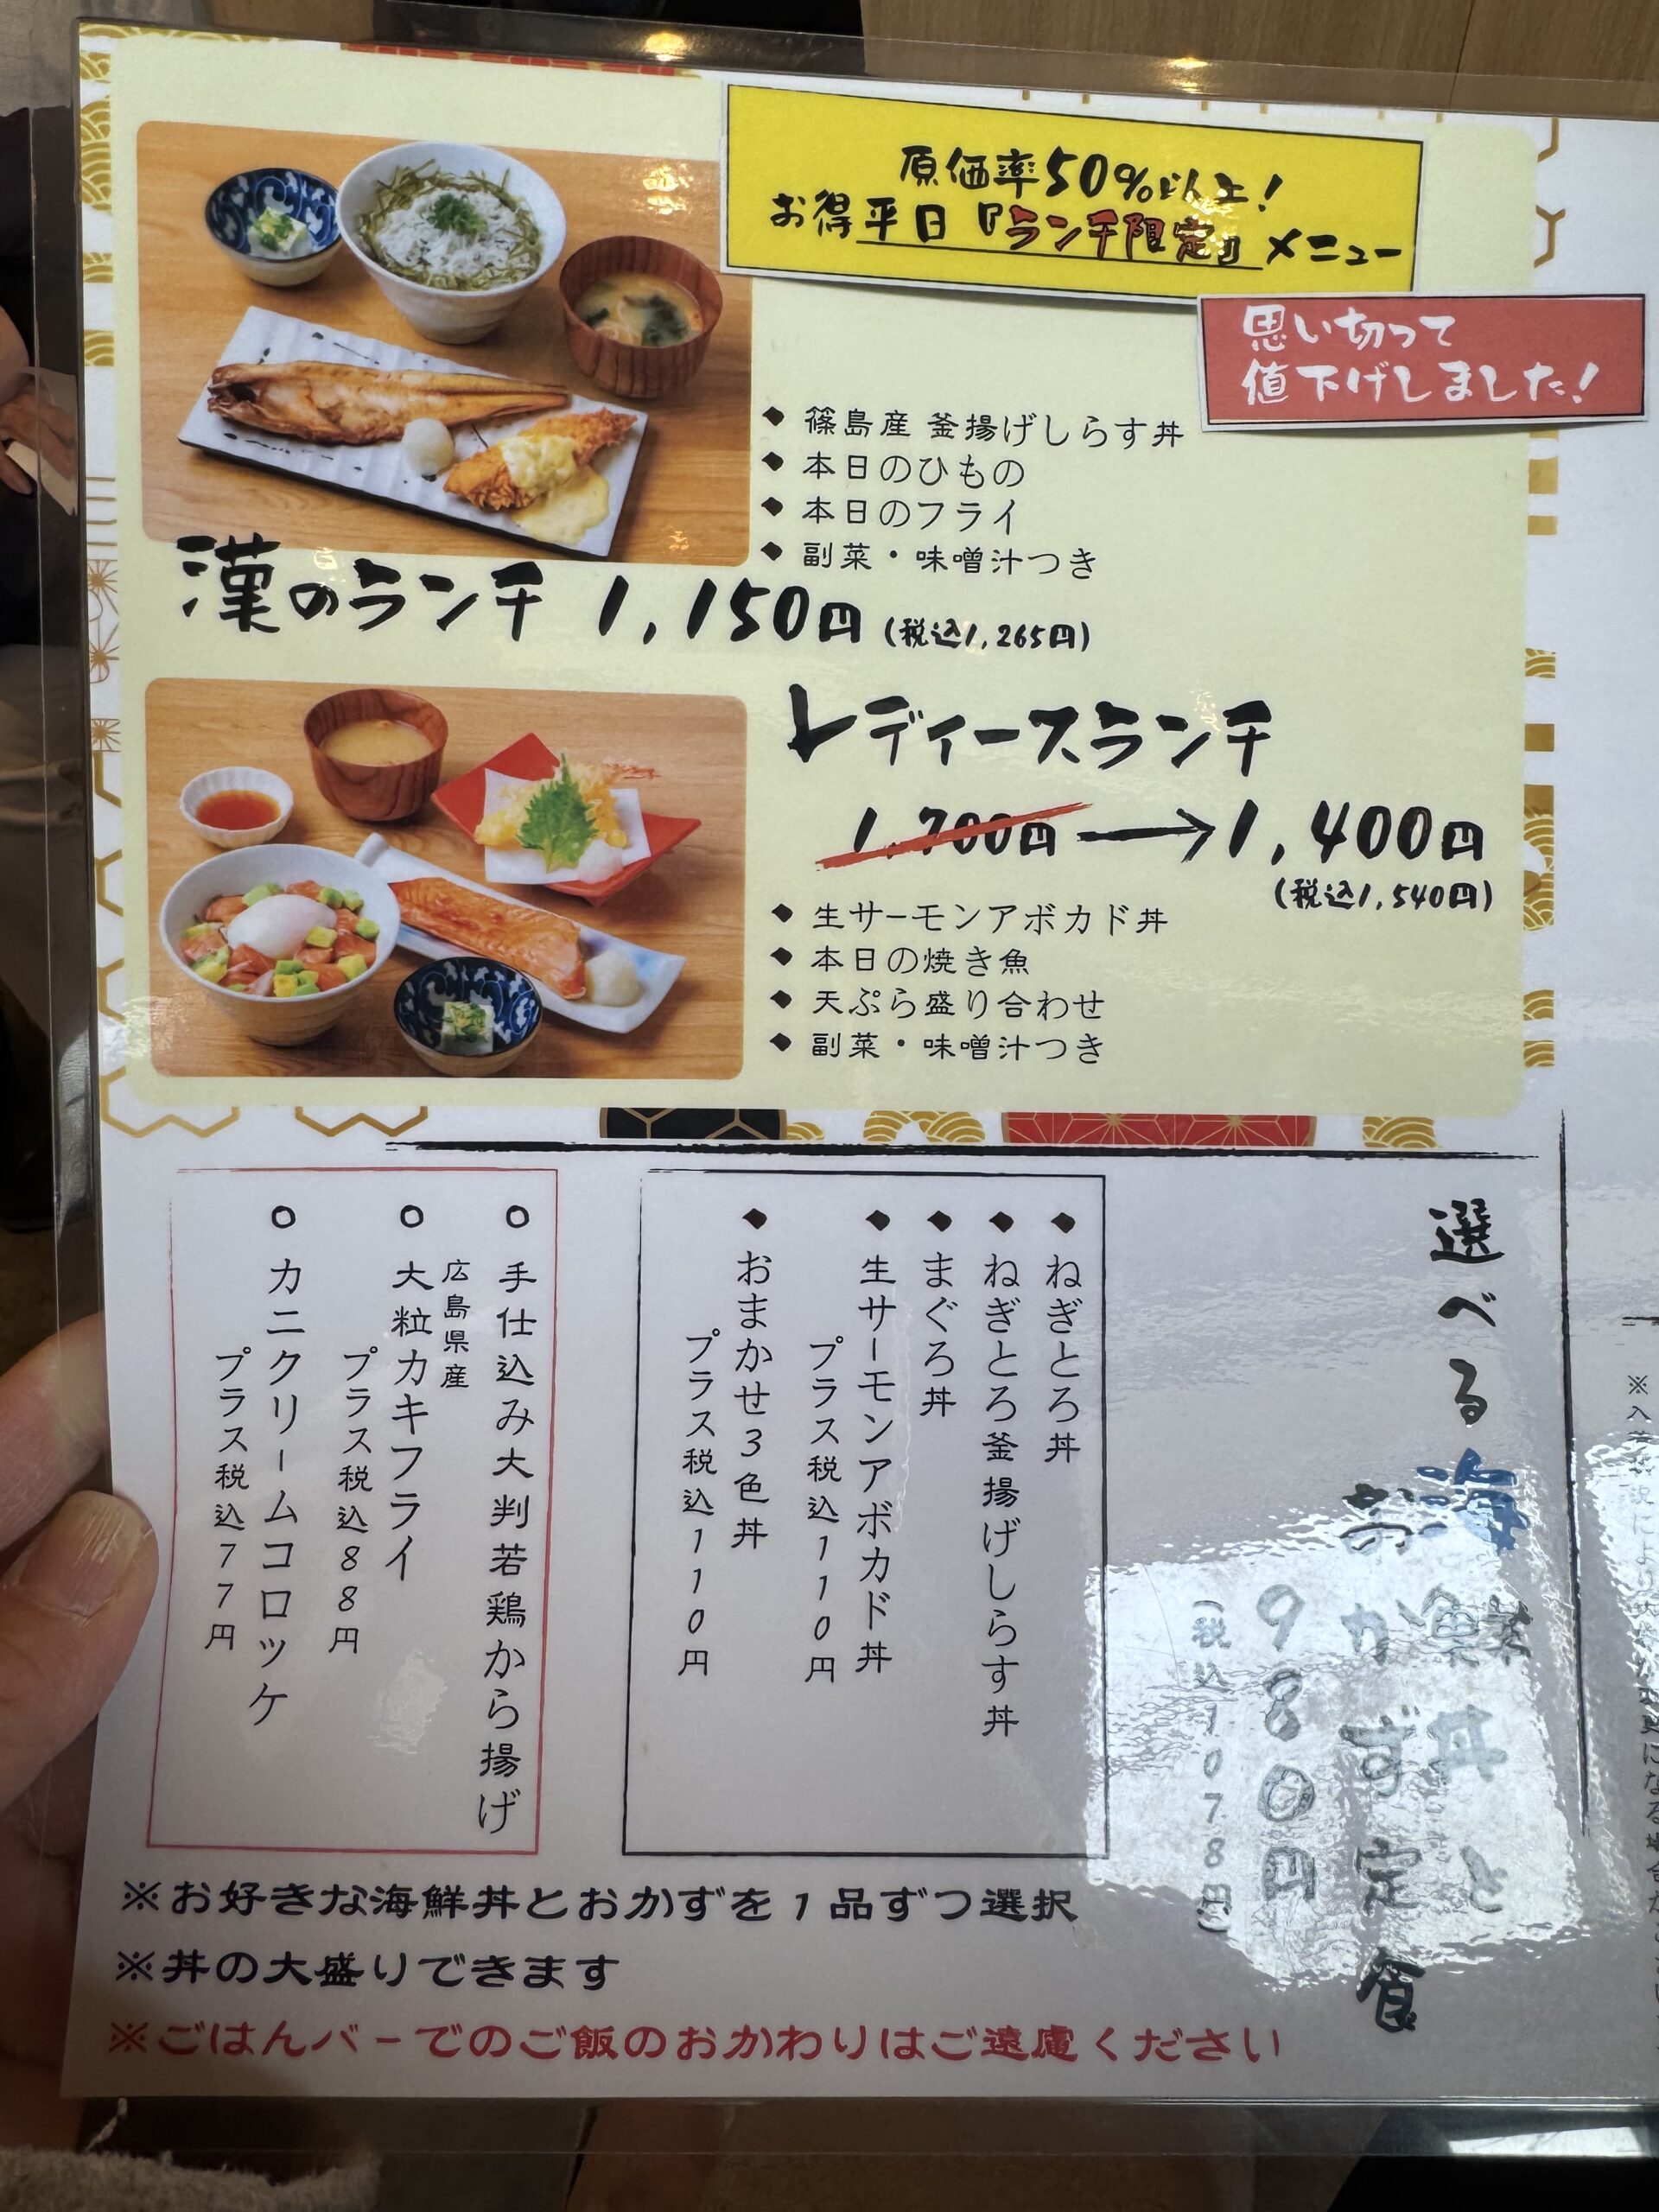 原価率50%以上！
お得平日『ランチ限定』メニュー
思い切って
値下げしました！
◆ 篠島産 釜揚げしらす丼
◆ 本日のひもの
◆ 本日のフライ
◆ 副菜・味噌汁つき
漢のランチ 1,150円 (税込1,265円)
レディースランチ
1,700円→1,400円
(税込1,540円)
◆ 生サーモンアボカド丼
◆ 本日の焼き魚
◆ 天ぷら盛り合わせ
◆ 副菜・味噌汁つき
選べる海鮮丼と
おかず定食
980円
(税込1078円)
◆ ねぎとろ丼
◆ ねぎとろ釜揚げしらす丼
◆ まぐろ丼
◆ 生サーモンアボカド丼
プラス税込110円
◆ おまかせ3色丼
プラス税込110円
○ 手仕込み大判若鶏から揚げ
広島県産
○ 大粒カキフライ
プラス税込88円
○ カニクリームコロッケ
プラス税込77円
※お好きな海鮮丼とおかずを1品ずつ選択
※丼の大盛りできます
※ごはんバーでのご飯のおかわりはご遠慮ください